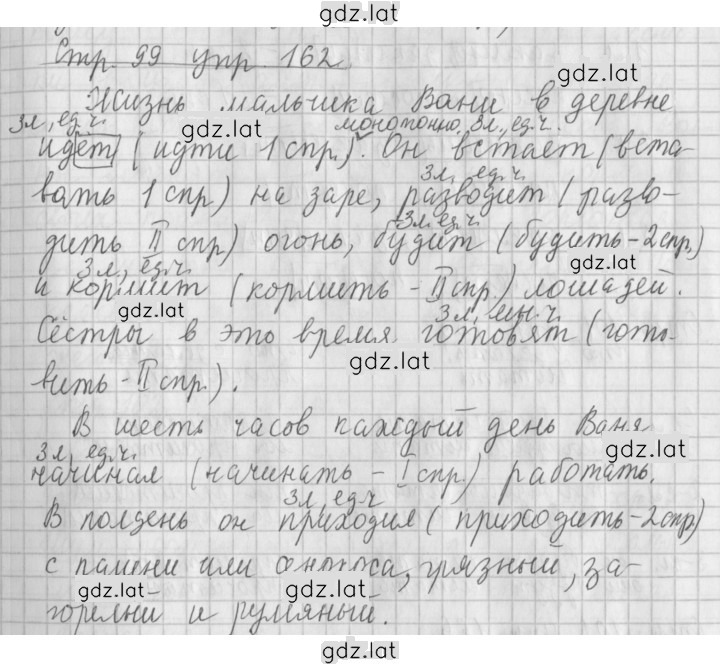 gdz.lat
Стр. 99 упр. 162
gdz.lat
Жизнь мальчика Вани в деревне
3л, ед.ч. gdz.lat монотонно. 3л., ед.ч.
идёт (идти 1 спр.). Он встаёт (вста-
3л, ед.ч.
вать 1 спр) на заре, разводит (разво-
3л. ед.ч.
дить II спр) огонь, будит (будить-2спр)
3л, ед.ч. gdz.lat
и кормит (кормить - II спр.) лошадей.
gdz.lat 3л, мн.ч.
Сёстры в это время готовят (гото-
gdz.lat
вить - II спр.).
В шесть часов каждый день Ваня
3л, ед.ч. gdz.lat
начинал (начинать - I спр) работать.
3л, ед.ч
В полдень он приходил (приходить-2спр)
с пашни или, грязный, за-
gdz.lat gdz.lat
горелый и румяный.
gdz.lat